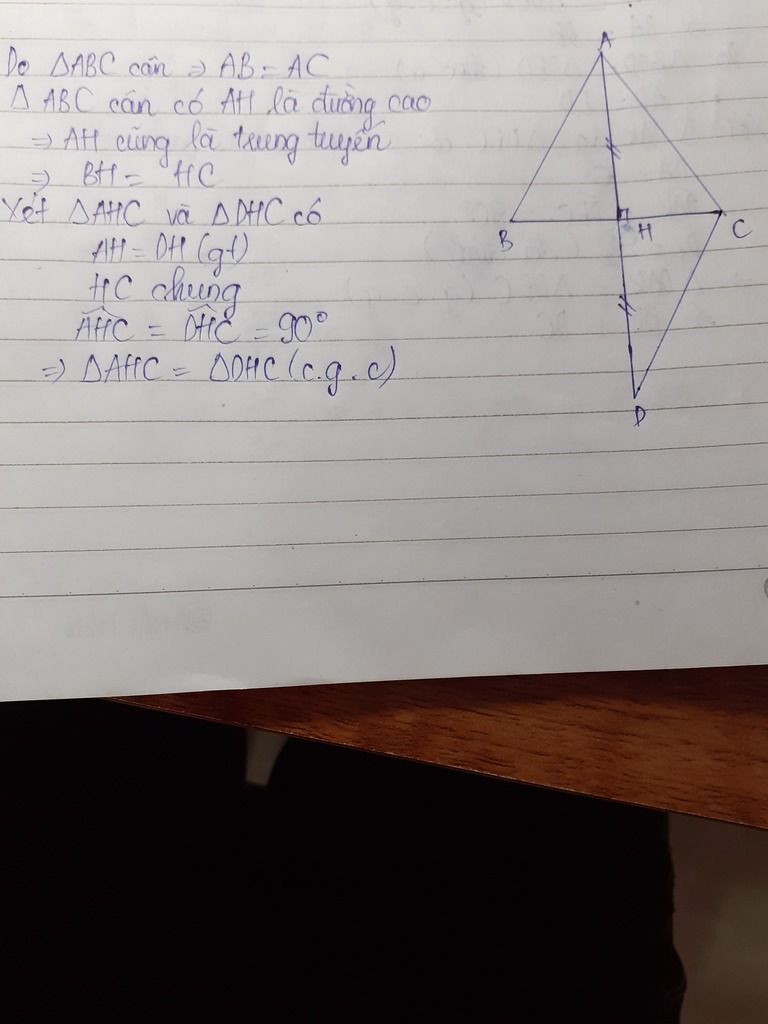 Do ΔABC cân ⇒ AB = AC
Δ ABC cân có AH là đường cao
⇒ AH cũng là trung tuyến
⇒ BH = HC
Xét ΔAHC và ΔDHC có
AH = DH (gt)
HC chung
AHC = DHC = 90°
⇒ ΔAHC = ΔDHC (c.g.c)
A
B
H
C
D